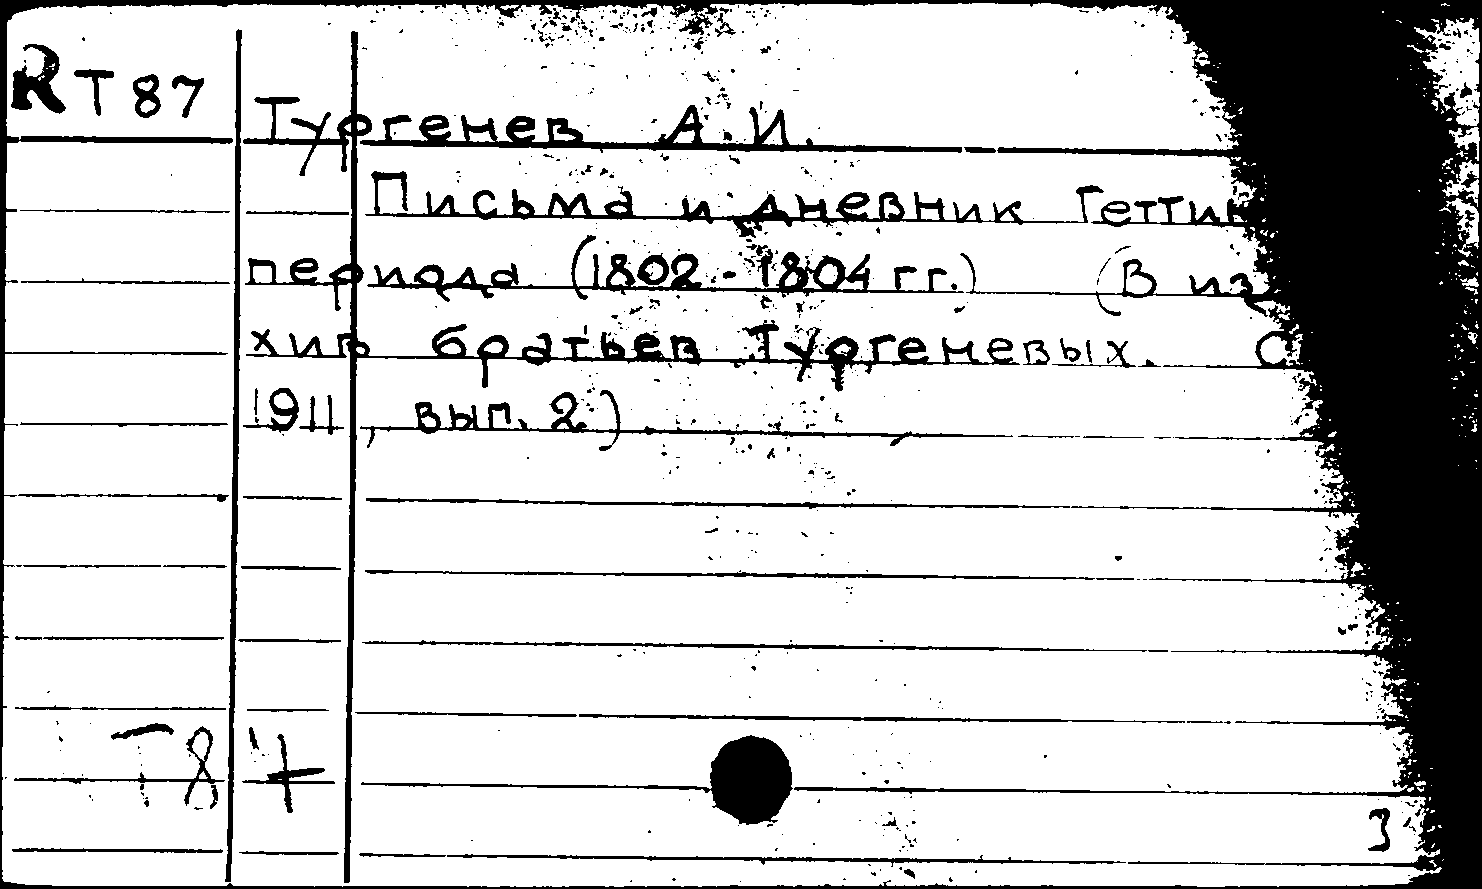 R T87
Тургенев А.И.
Письма и дневник Геттин
периода (1802-1804 гг.) (В из
хив братьев Тургеневых. С
1911, вып. 2).
Т87
3